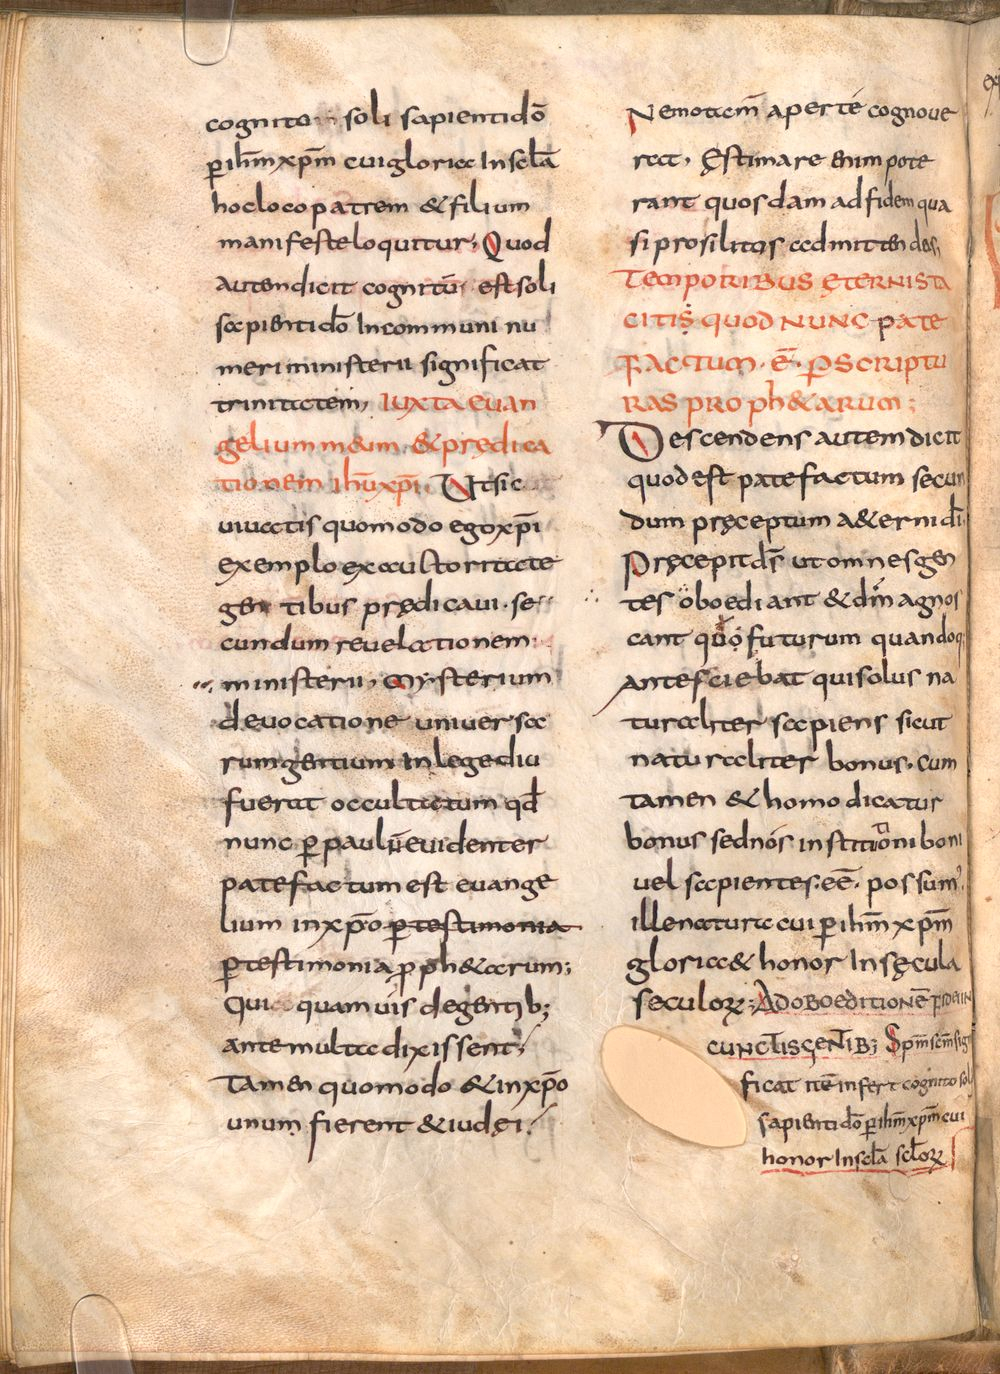 cognito soli sapienti dō
p̲ ihm̄ xp̄m cui gloria In scl̄a
hoc loco patrem & filium
manifeste loquitur; Quod
autem dicit cognitū est soli
sapienti dō In communi nu
meri ministerii significat
trinitatem, Iuxta euan
gelium meum & prędica
tionem ihū xp̄i Ut sic
uiuatis quomodo ego xp̄i
exemplo ex auctoritate
gentibus prędicaui. se
cundum reuelationem
ministerii, mysterium
de uocatione uniuersa
rum gentium In lege diu
fuerat occultatum qd̄
nunc p̲ paulū euidenter
patefactum est euange
lium in xp̄o p̲ testimonia
p̲ testimonia pph&arum;
Qui quamuis de gentib;
ante multa dixissent;
Tamen quomodo & in xp̄o
unum fierent & iudęi;
Nemo tam̄ aperte cognoue
rat, Ęstimare enim pote
rant quosdam ad fidem qua
si prosilitos admittendos,
Temporibus ęternis ta
citis quod nunc pate
factum. ē. p̲ scriptu
ras proph&arum;
Descendens autem dicit
quod est patefactum secun
dum pręceptum a&erni dī
Pręcepit dš ut omnes gen
tes oboediant & dm̄ agnos
cant quō futurum quandoq;
ante sciebat qui solus na
turaliter sapiens sicut
naturaliter bonus. cum
tamen & homo dicatur
bonus sed nos institutioni boni
uel sapientes. eē. possum'.
ille natura cui p̲ ihm̄ xp̄m
gloria & honor In sęcula
seculoꝝ; Ad oboeditionē fidei in
cunctis gentib; Sp̄m scm̄ sig
ficat itē infert cognito soli
sapienti dō p̲ ihm̄ xp̄m cui
honor In scl̄a scl̄oꝝ